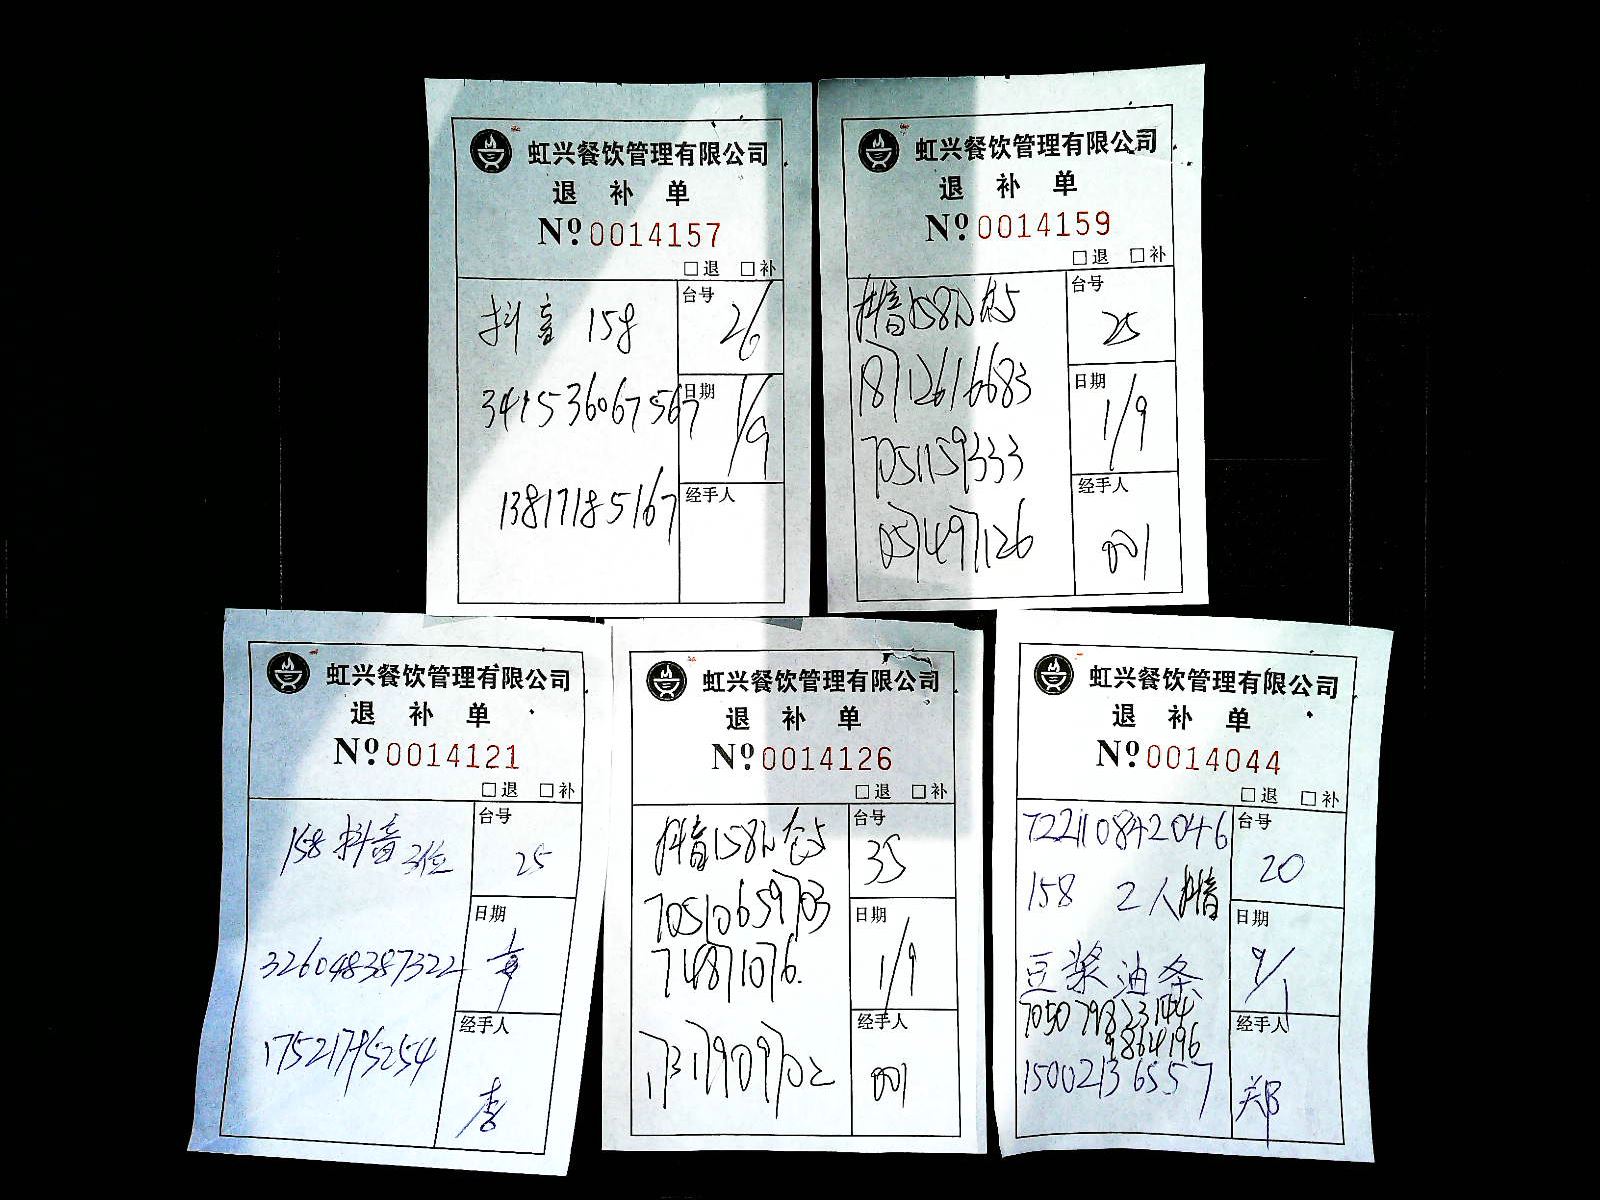 虹兴餐饮管理有限公司
退 补 单
Nº 0014157
□退 □补
抖音 158
台号
26
341536067567
日期
1/9
13817185167
经手人
虹兴餐饮管理有限公司
退 补 单
Nº 0014159
□退 □补
抖音158
台号
25
18712616683
日期
1/9
7051159333
经手人
057497126
001
虹兴餐饮管理有限公司
退 补 单
Nº 0014121
□退 □补
158 抖音 2位
台号
25
日期
326048387322
经手人
17521795254
李
虹兴餐饮管理有限公司
退 补 单
Nº 0014126
□退 □补
抖音158
台号
35
70510659703
日期
74871076.
1/9
经手人
17317909702
001
虹兴餐饮管理有限公司
退 补 单
Nº 0014044
□退 □补
722110842046
台号
20
158 2人抖音
日期
9/1
豆浆油条
705079823144
9864196
经手人
15002136557
郑